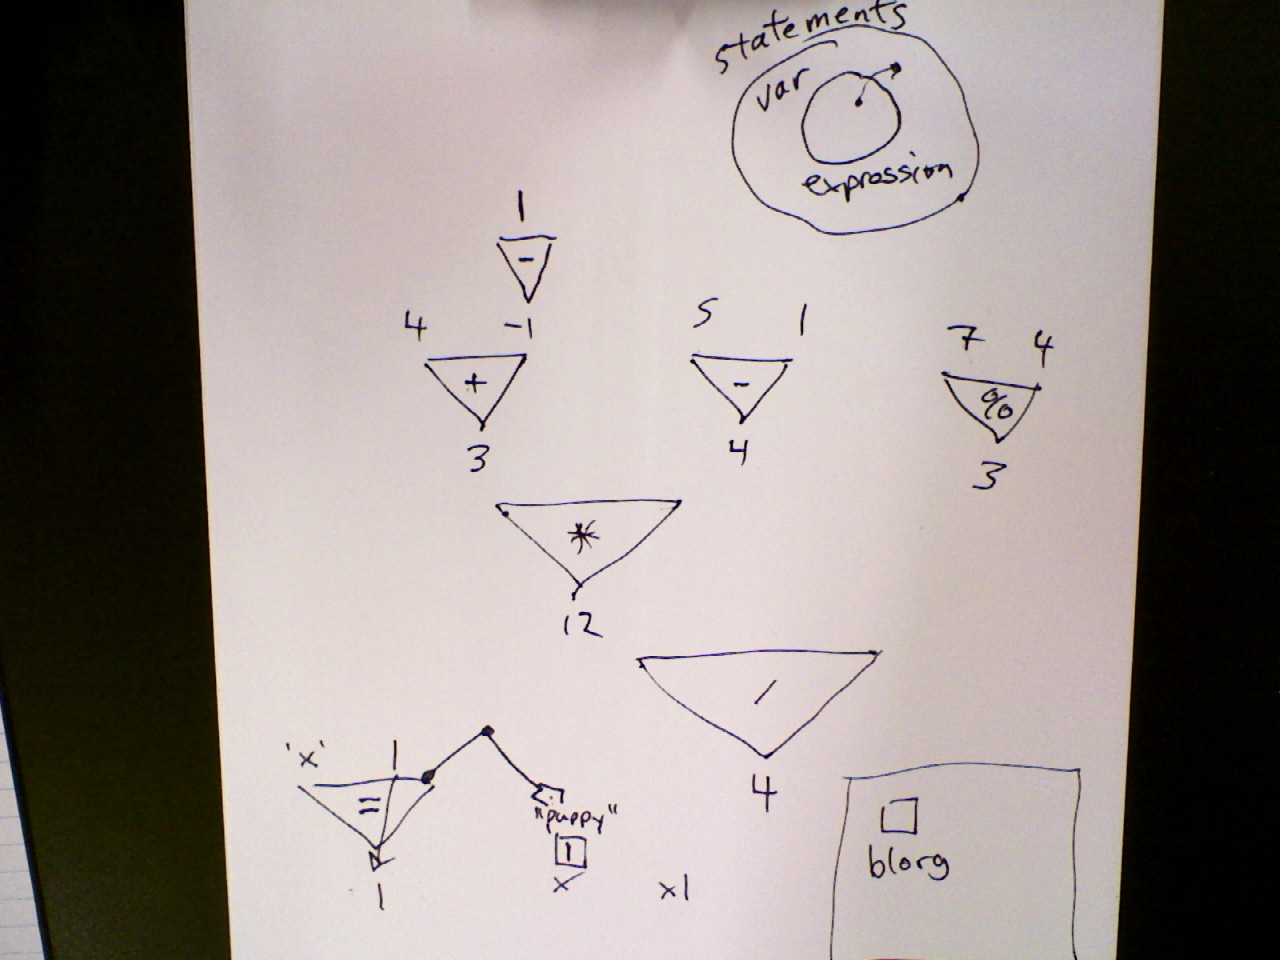 statements
var
expression
1
-
4 -1
+
3
5 1
-
4
7 4
%
3
*
12
/
4
'x' 1
=
1
"puppy"
1
x
x1
blorg